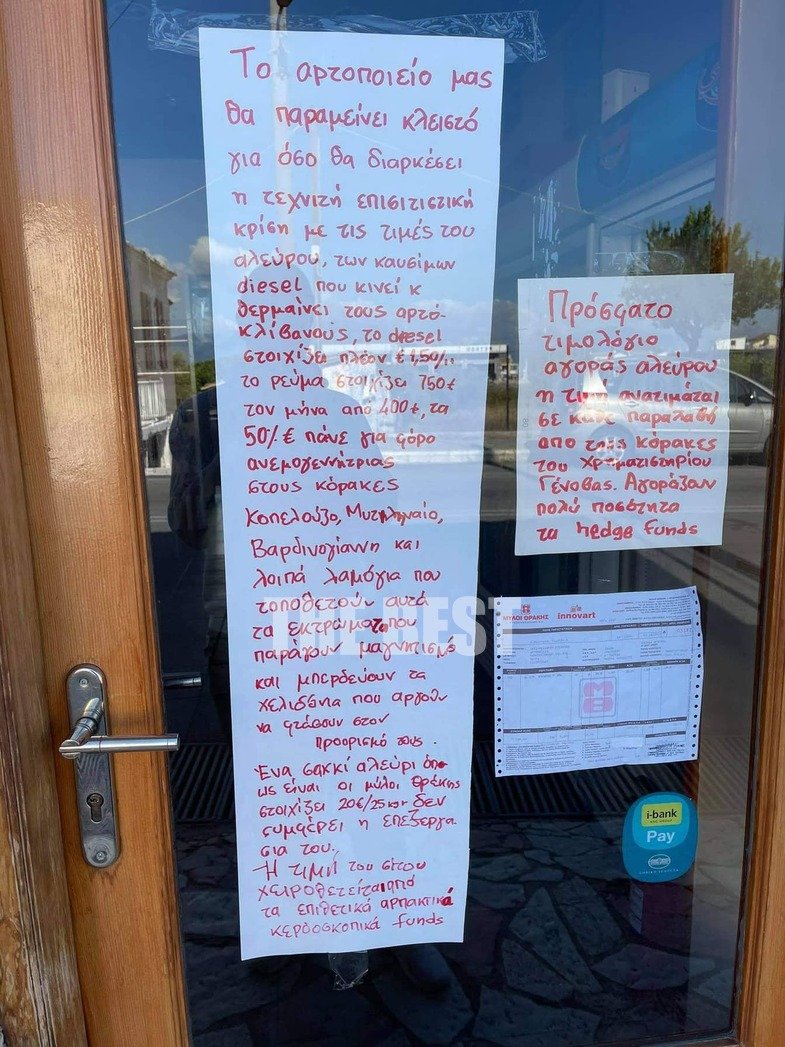 Το αρτοποιείο μας
θα παραμείνει κλειστό
για όσο θα διαρκέσει
η τεχνιτή επισιτιστική
κρίση με τις τιμές του
αλεύρου, των καυσίμων
diesel που κινεί κ
θερμαίνει τους αρτο-
κλίβανους, το diesel
στοιχίζει πλέον € 1,50/
το ρεύμα στοιχίζει 750€
τον μήνα απο 400€, τα
50% € πάνε για φόρο
ανεμογεννήτριας
στους κόρακες
Κοπελούζο, Μυτιληναίο,
Βαρδινογίαννη και
λοιπά λαμόγια που
τοποθετούν αυτά
τα εκτρώματα που
παράγουν μαγνητισμό
και μπερδεύουν τα
χελιδόνια που αργούν
να φτάσουν στον
προορισμό τους.
Ένα σακκί αλεύρι όπ
ως είναι οι μύλοι Θράκης
στοιχίζει 20€/25κgr δεν
συμφέρει η επεξεργα
σια του..
Η τιμή του σίτου
χειροθετείται από
τα επιθετικά αρπακτικά
κερδοσκοπικά funds
Πρόσφατο
τιμολόγιο
αγοράς αλεύρου
η τιμή ανατιμάται
σε κάθε παραλαβή
απο τους κόρακες
του Χρηματιστηρίου
Γένοβας. Αγοράζουν
πολύ ποσότητα
τα hedge funds
THE BEST
ΜΥΛΟΙ ΘΡΑΚΗΣ innovart
i-bank
Pay